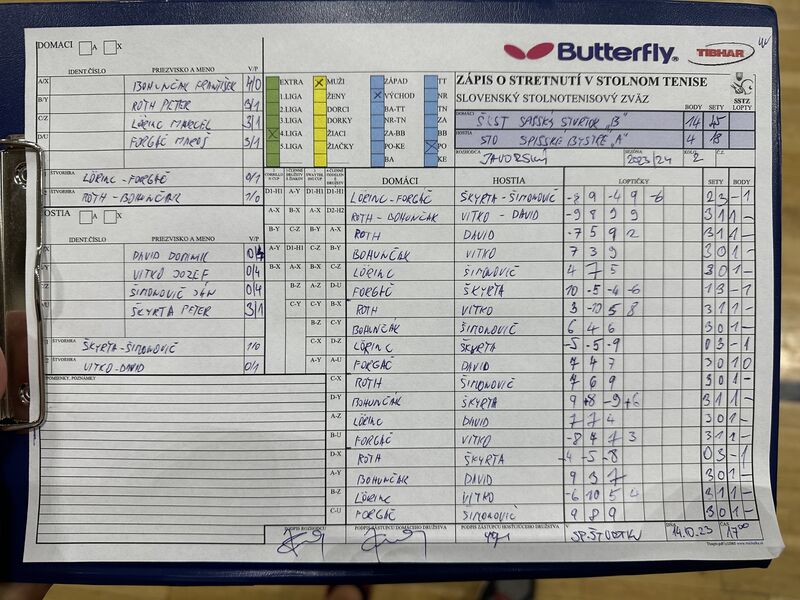 DOMACI A X
IDENT.ČÍSLO PRIEZVISKO A MENO V/P
A/X BOHUNČÁK FRANTIŠEK 4/0
B/Y ROTH PETER 3/1
C/Z LÖRINC MARCEL 3/1
D/U FORGÁČ MAROŠ 3/1
ŠTVORHRA LÖRINC - FORGÁČ 0/1
ŠTVORHRA ROTH - BOHUNČÁK 1/0
HOSTIA A X
IDENT.ČÍSLO PRIEZVISKO A MENO V/P
DAVID DOMINIK 0/4
VITKO JOZEF 0/4
ŠIMONOVIČ JÁN 0/4
ŠKYRTA PETER 3/1
ŠTVORHRA ŠKYRTA - ŠIMONOVIČ 1/0
ŠTVORHRA VITKO - DAVID 0/1
POMIENKY, POZNÁMKY
Butterfly TIBHAR
EXTRA MUŽI ZÁPAD TT
1.LIGA ŽENY VÝCHOD NR
2.LIGA DORCI BA-TT TN
3.LIGA DORKY NR-TN ZA
4.LIGA ŽIACI ZA-BB BB
5.LIGA ŽIAČKY PO-KE PO
BA KE
ZÁPIS O STRETNUTÍ V STOLNOM TENISE
SLOVENSKÝ STOLNOTENISOVÝ ZVÄZ
SSTZ
BODY SETY LOPTY
DOMÁCI ŠK ŠT SPIŠSKÝ ŠTVRTOK "B" 14 45
HOSTIA STO SPIŠSKÉ BYSTRÉ "A" 4 18
ROZHODCA JAVORSKÝ SEZÓNA 2023/24 KOLO 2
DOMÁCI HOSTIA LOPTIČKY SETY BODY
D1-H1 A-Y D1-H1 D1-H1 LÖRINC - FORGÁČ ŠKYRTA - ŠIMONOVIČ -8 9 -4 9 -6 2 3 - 1
A-X B-X A-X D2-H2 ROTH - BOHUNČÁK VITKO - DAVID -9 8 9 9 3 1 1 -
B-Y C-Z B-Y A-X ROTH DAVID -7 5 9 2 3 1 1 -
A-Y D1-H1 C-Z B-Y BOHUNČÁK VITKO 7 3 9 3 0 1 -
B-X A-X B-X C-Z LÖRINC ŠIMONOVIČ 4 7 5 3 0 1 -
B-Z A-Z D-U FORGÁČ ŠKYRTA 10 -5 -4 -6 1 3 - 1
C-Y C-Y B-X ROTH VITKO 3 -10 5 8 3 1 1 -
B-Z C-Y BOHUNČÁK ŠIMONOVIČ 6 4 6 3 0 1 -
C-X D-Z LÖRINC ŠKYRTA -5 -5 -9 0 3 - 1
A-Y A-U FORGÁČ DAVID 7 4 7 3 0 1 0
C-X ROTH ŠIMONOVIČ 7 6 9 3 0 1 -
D-Y BOHUNČÁK ŠKYRTA 9 +8 -9 +6 3 1 1 -
A-Z LÖRINC DAVID 7 7 4 3 0 1 -
B-U FORGÁČ VITKO -8 4 7 3 3 1 1 -
D-X ROTH ŠKYRTA -4 -5 -8 0 3 - 1
A-Y BOHUNČÁK DAVID 9 3 7 3 0 1 -
B-Z LÖRINC VITKO -6 10 5 4 3 1 1 -
C-U FORGÁČ ŠIMONOVIČ 9 8 9 3 0 1 -
PODPIS ROZHODCU PODPIS ZÁSTUPCU DOMÁCEHO DRUŽSTVA PODPIS ZÁSTUPCU HOSŤUJÚCEHO DRUŽSTVA V SP. ŠTVRTKU DŇA 14.10.23 ČAS 17:00